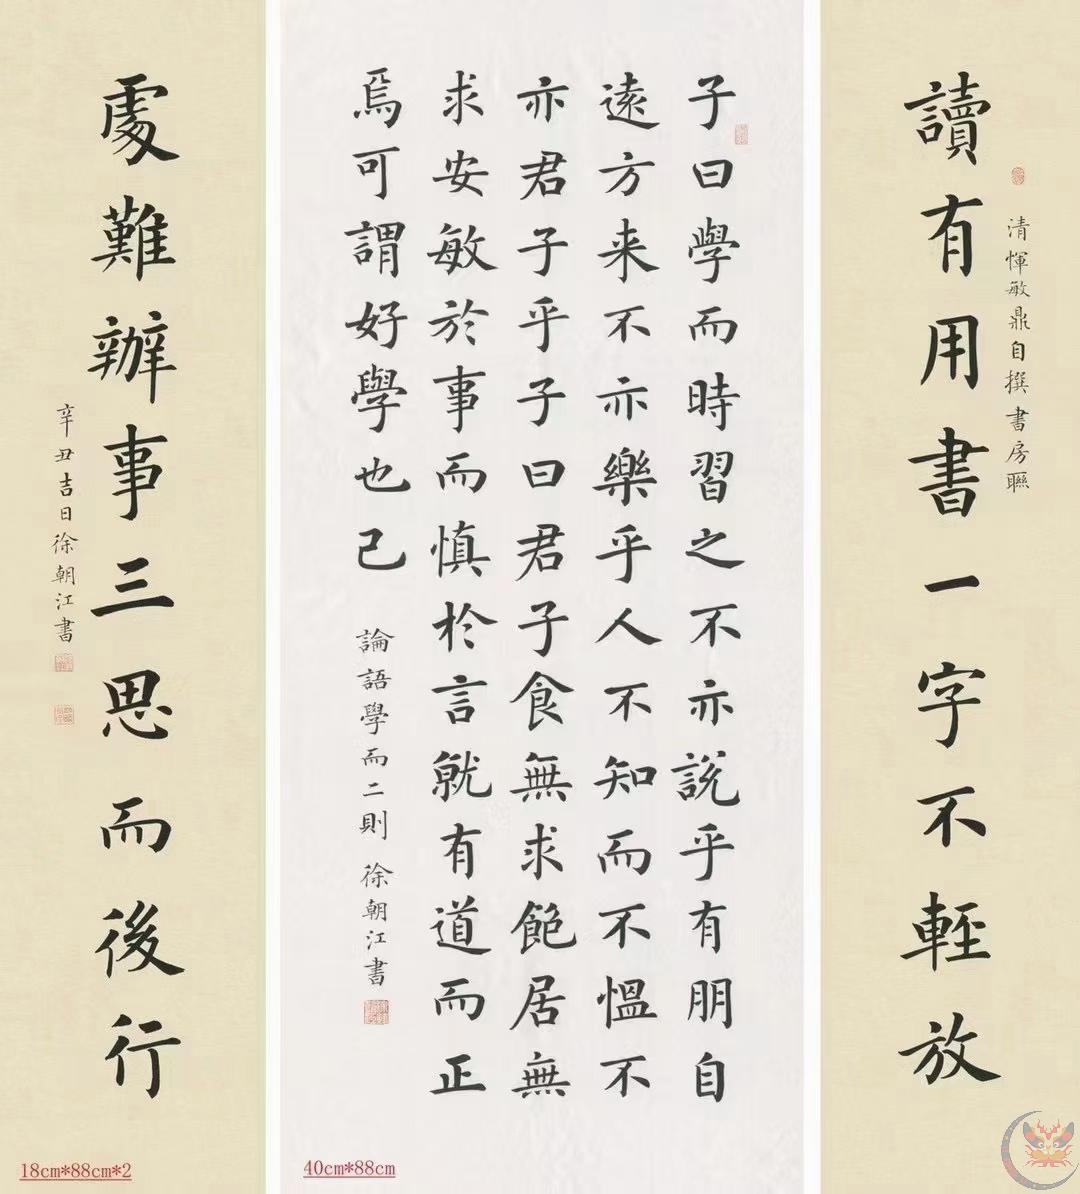 清惲敏鼎自撰書房聯
讀有用書一字不輕放
子曰學而時習之不亦説乎有朋自
遠方来不亦樂乎人不知而不慍不
亦君子乎子曰君子食無求飽居無
求安敏於事而慎於言就有道而正
焉可謂好學也已
論語學而二則 徐朝江書
處難辦事三思而後行
辛丑吉日徐朝江書
18cm*88cm*2
40cm*88cm